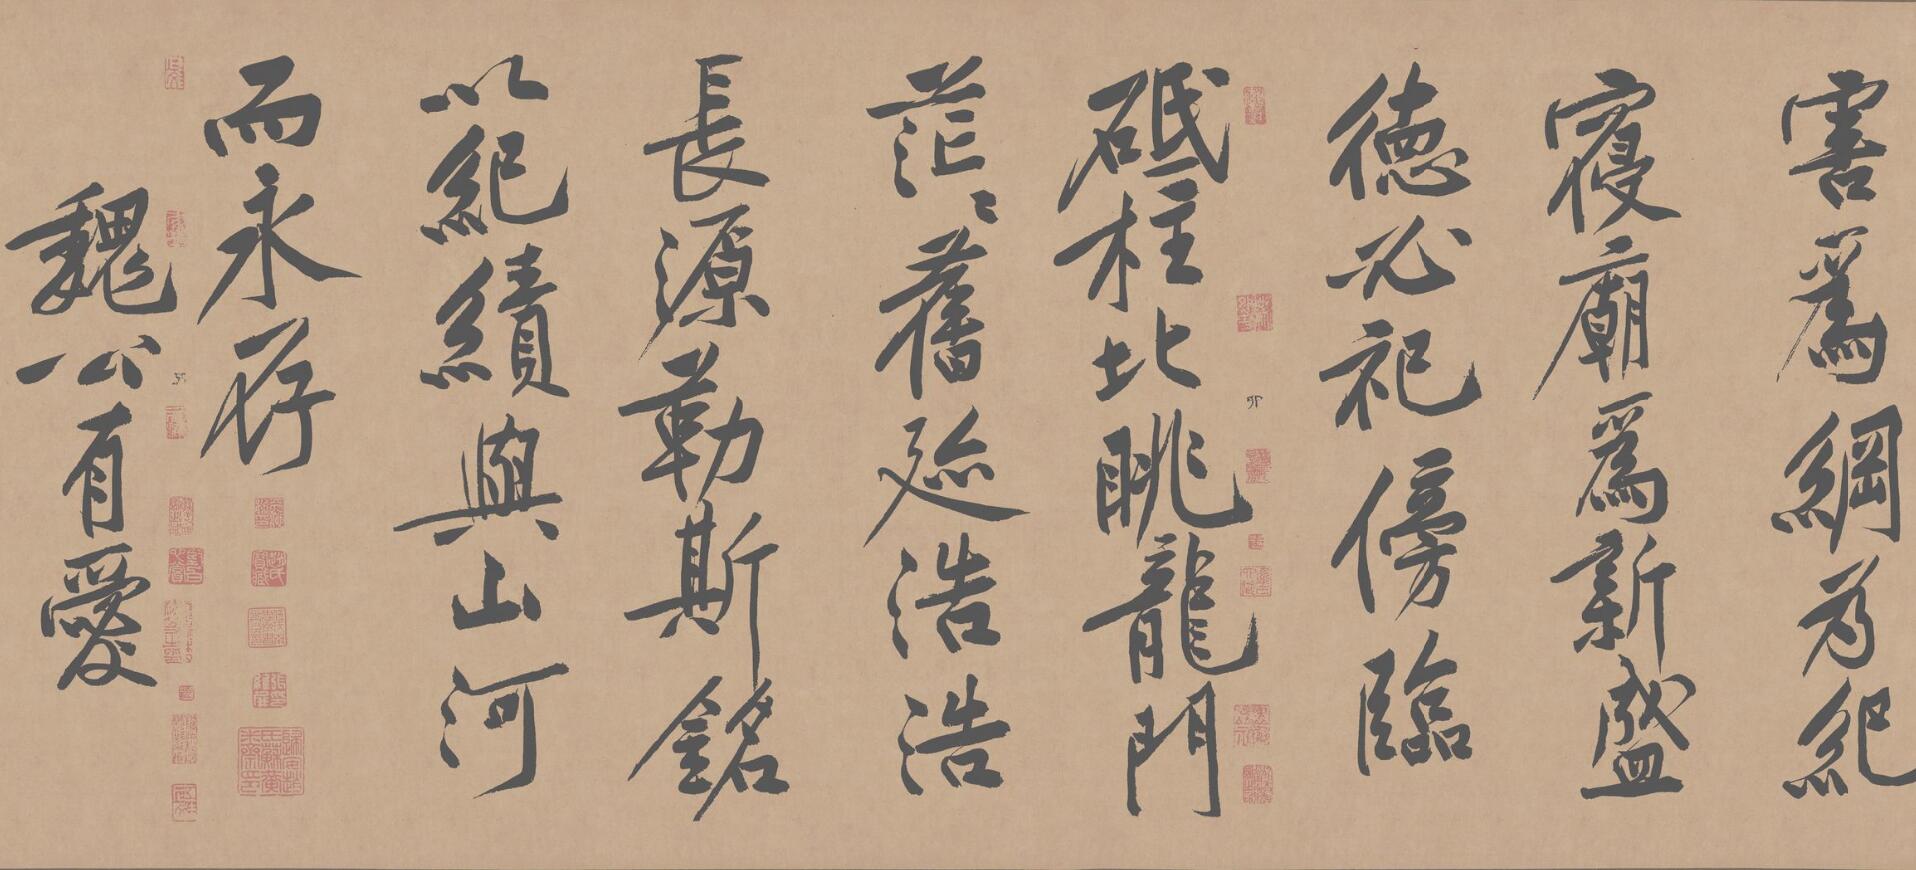 害爲綱爲紀
寢廟爲新盛
德必祀傍臨
砥柱北眺龍門
茫〻舊迹浩浩
長源勒斯銘
以紀績與山河
而永存
魏公有愛